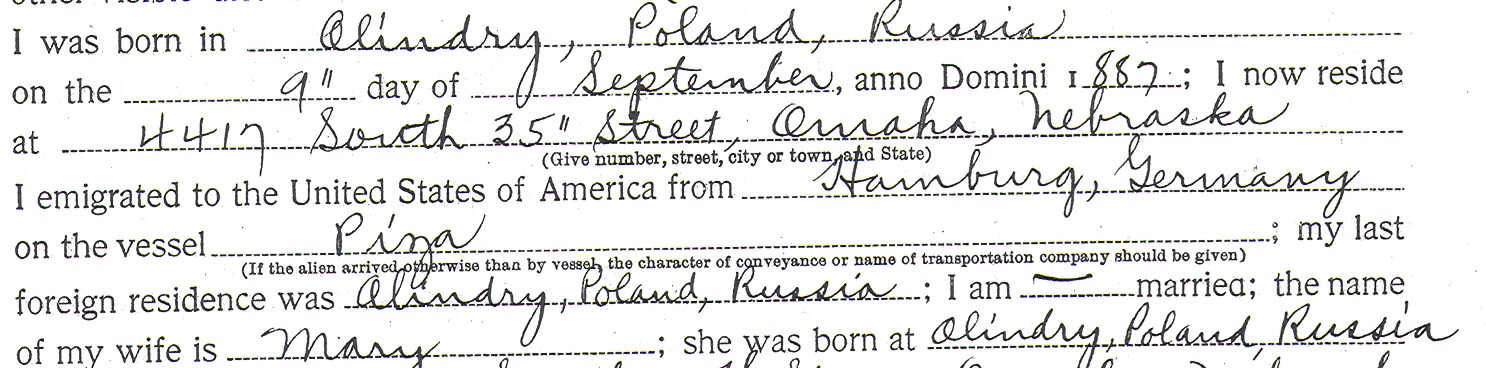 I was born in Olindry, Poland, Russia
on the 9" day of September, anno Domini 1887; I now reside
at 4417 South 35" Street, Omaha, Nebraska
(Give number, street, city or town, and State)
I emigrated to the United States of America from Hamburg, Germany
on the vessel Piza; my last
(If the alien arrived otherwise than by vessel, the character of conveyance or name of transportation company should be given)
foreign residence was Olindry, Poland, Russia; I am — married; the name
of my wife is Mary; she was born at Olindry, Poland, Russia